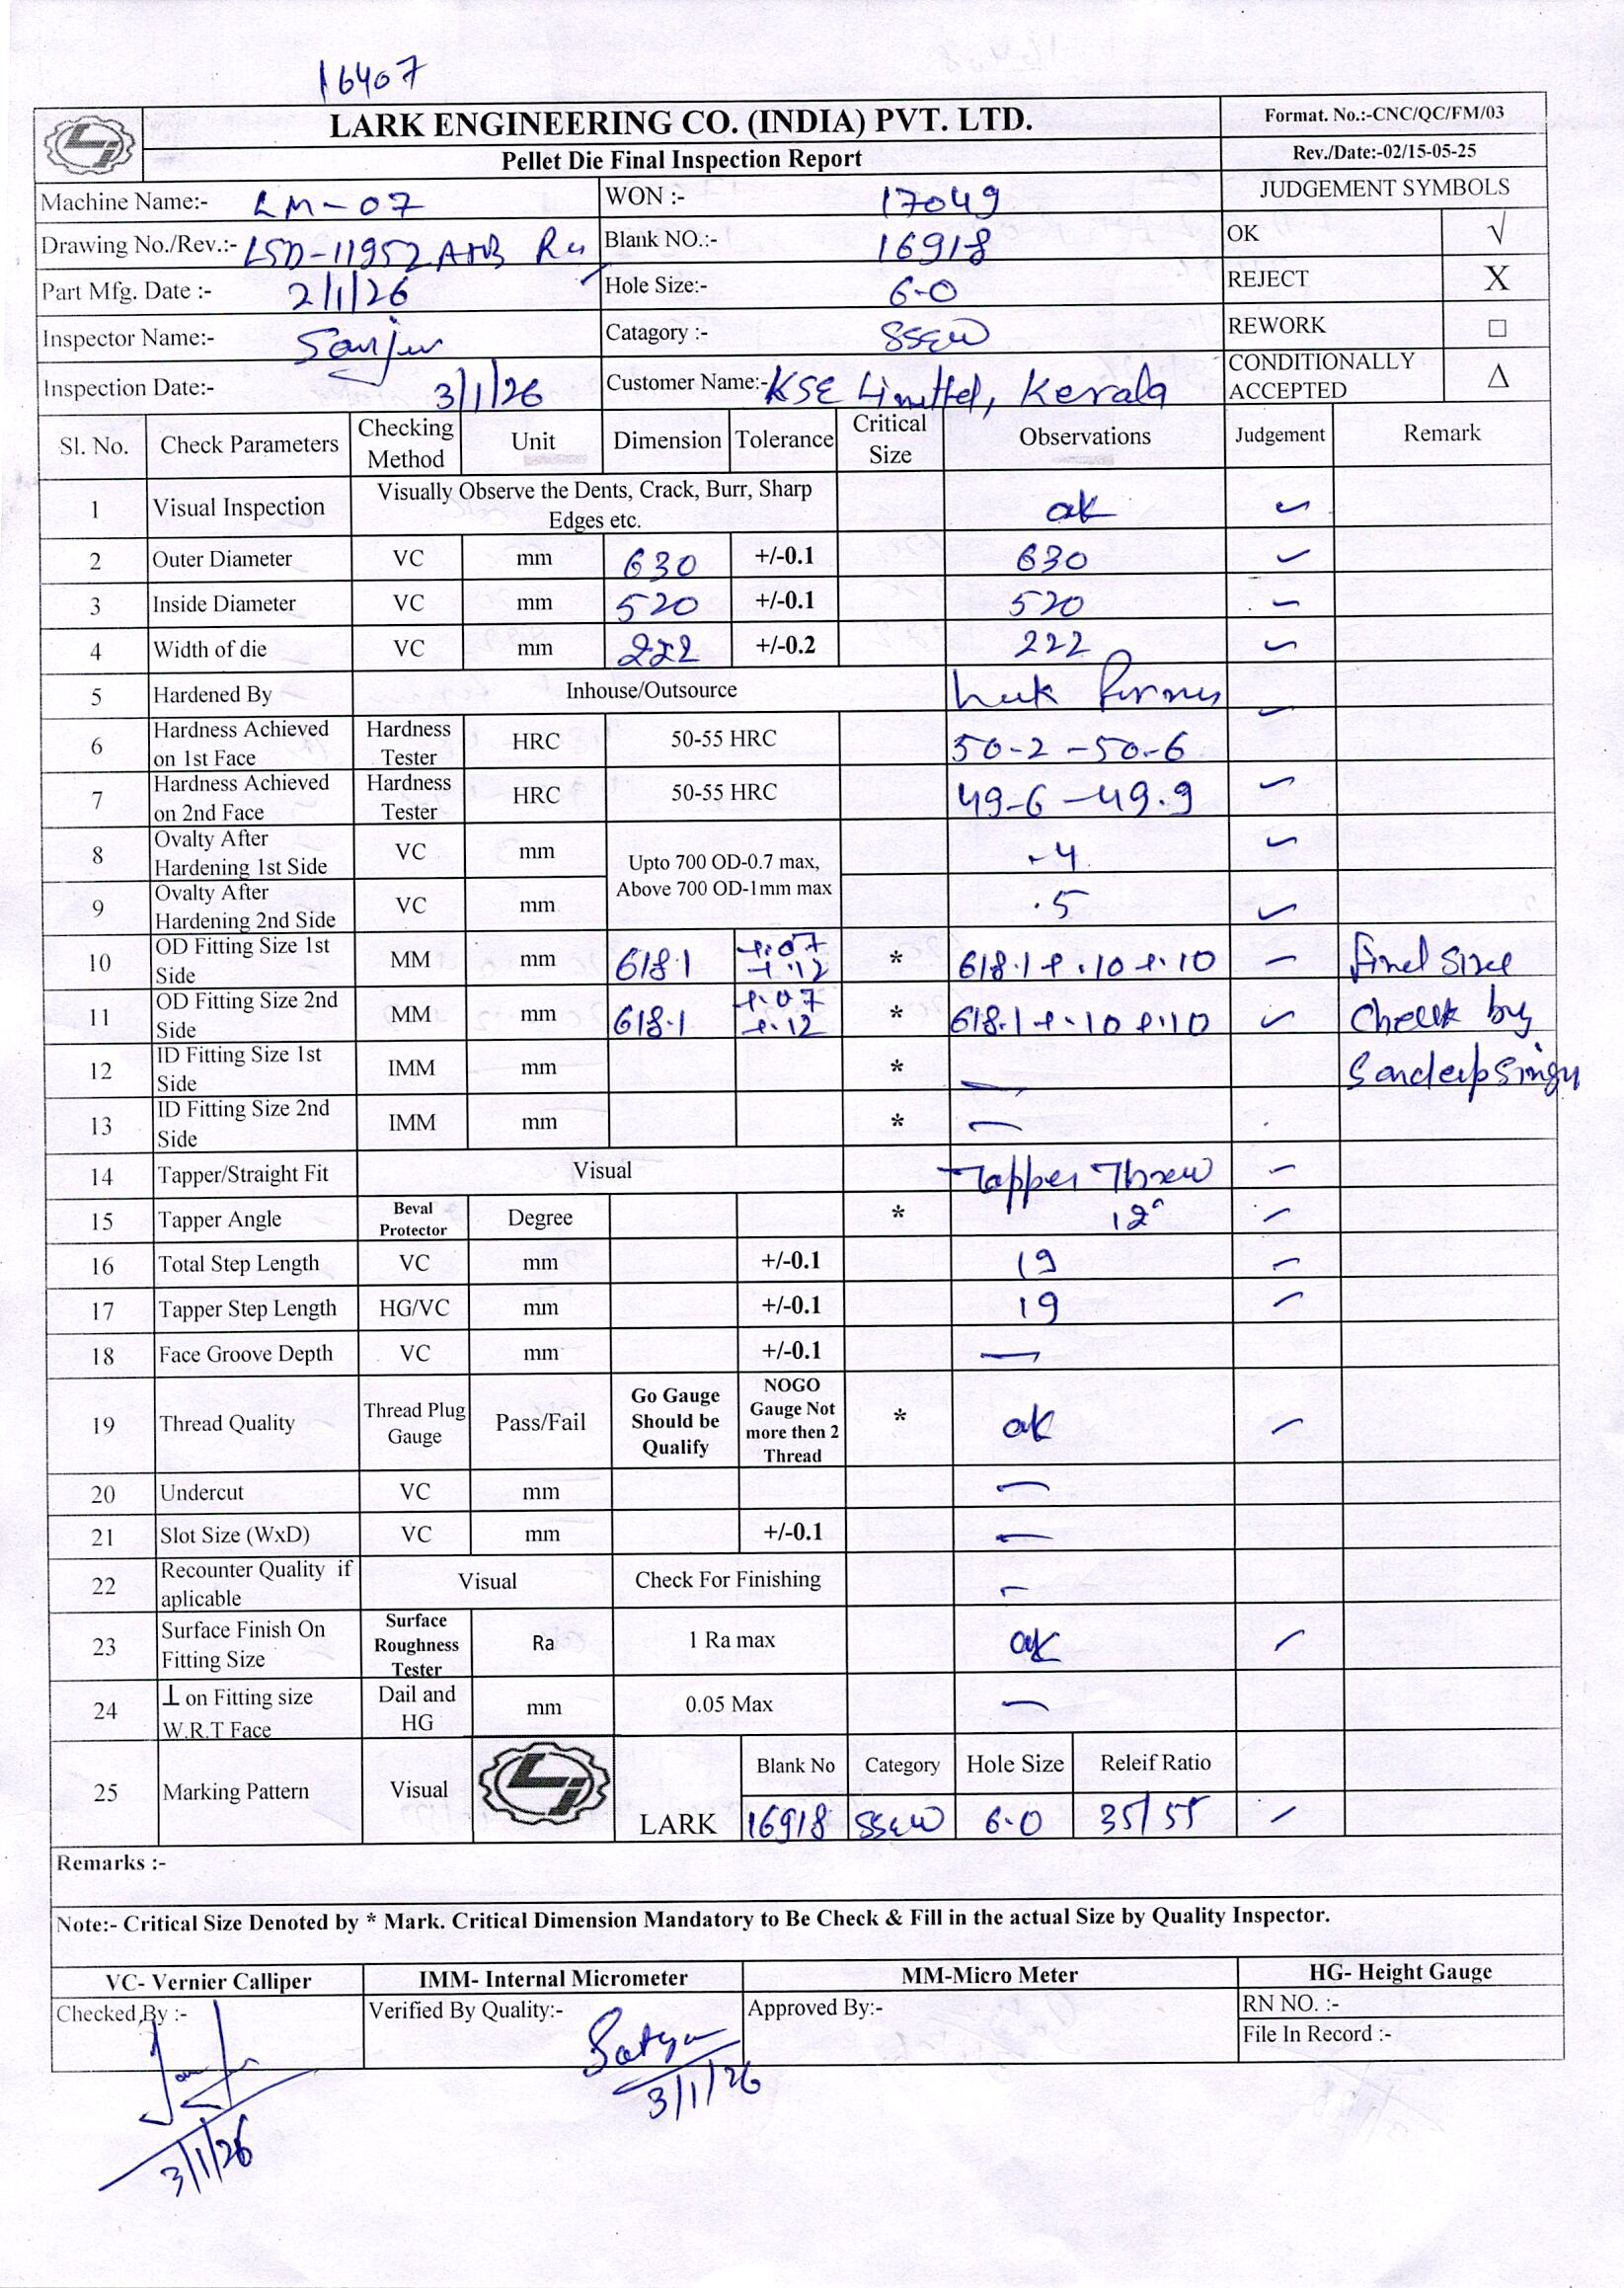 16407
LARK ENGINEERING CO. (INDIA) PVT. LTD.
Format. No.:-CNC/QC/FM/03
Pellet Die Final Inspection Report
Rev./Date:-02/15-05-25
Machine Name:- LM-07 WON :- 17049 JUDGEMENT SYMBOLS
Drawing No./Rev.:- LSD-11952 Blank NO.:- 16918 OK √
Part Mfg. Date :- 2/1/26 Hole Size:- 6-0 REJECT X
Inspector Name:- Sanju Catagory :- SS&W REWORK □
Inspection Date:- 3/1/26 Customer Name:- KSE Limitted, Kerala CONDITIONALLY ACCEPTED Δ
Sl. No. Check Parameters Checking Method Unit Dimension Tolerance Critical Size Observations Judgement Remark
1 Visual Inspection Visually Observe the Dents, Crack, Burr, Sharp Edges etc. ok ✓
2 Outer Diameter VC mm 630 +/-0.1 630 ✓
3 Inside Diameter VC mm 520 +/-0.1 520 ✓
4 Width of die VC mm 222 +/-0.2 222 ✓
5 Hardened By Inhouse/Outsource ✓
6 Hardness Achieved on 1st Face Hardness Tester HRC 50-55 HRC 50-2 - 50-6
7 Hardness Achieved on 2nd Face Hardness Tester HRC 50-55 HRC 49-6 - 49.9 ✓
8 Ovalty After Hardening 1st Side VC mm Upto 700 OD-0.7 max, Above 700 OD-1mm max .4 ✓
9 Ovalty After Hardening 2nd Side VC mm .5 ✓
10 OD Fitting Size 1st Side MM mm 618.1 +.07 +.12 * 618.1 +.10 +.10 ✓ Finel Size
11 OD Fitting Size 2nd Side MM mm 618.1 +.07 +.12 * 618.1 +.10 +.10 ✓ Check by
12 ID Fitting Size 1st Side IMM mm * — Sandeep Singh
13 ID Fitting Size 2nd Side IMM mm * —
14 Tapper/Straight Fit Visual Tapper Threw ✓
15 Tapper Angle Beval Protector Degree * 12° ✓
16 Total Step Length VC mm +/-0.1 19 ✓
17 Tapper Step Length HG/VC mm +/-0.1 19 ✓
18 Face Groove Depth VC mm +/-0.1 —
19 Thread Quality Thread Plug Gauge Pass/Fail Go Gauge Should be Qualify NOGO Gauge Not more then 2 Thread * ok ✓
20 Undercut VC mm —
21 Slot Size (WxD) VC mm +/-0.1 —
22 Recounter Quality if aplicable Visual Check For Finishing —
23 Surface Finish On Fitting Size Surface Roughness Tester Ra 1 Ra max ok ✓
24 ⊥ on Fitting size W.R.T Face Dail and HG mm 0.05 Max —
25 Marking Pattern Visual LARK Blank No Category Hole Size Releif Ratio
16918 SS&W 6.0 35/55 ✓
Remarks :-
Note:- Critical Size Denoted by * Mark. Critical Dimension Mandatory to Be Check & Fill in the actual Size by Quality Inspector.
VC- Vernier Calliper IMM- Internal Micrometer MM-Micro Meter HG- Height Gauge
Checked By :- Verified By Quality:- Satya Approved By:- RN NO. :-
File In Record :-
3/1/26
3/1/26